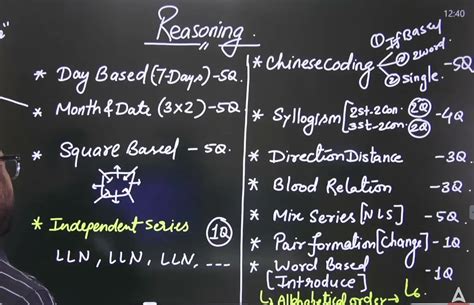 12:40
Reasoning.
* Day Based (7-Days) -5Q.
* Month & Date (3x2) -5Q
* Square Based - 5Q.
* Independent Series 1Q
LLN, LLN, LLN, ---
* Chinese coding - 5Q
① If Based
② 2 word
③ single.
* Syllogism [2st-2con. 2Q - 4Q
3st-2con. 2Q
* Direction Distance - 3Q
* Blood Relation - 3Q
* Mix Series [NLS] - 5Q
* Pair formation [Change] - 1Q
* Word Based - 1Q
[Introduce]
↳ Alphabetical order